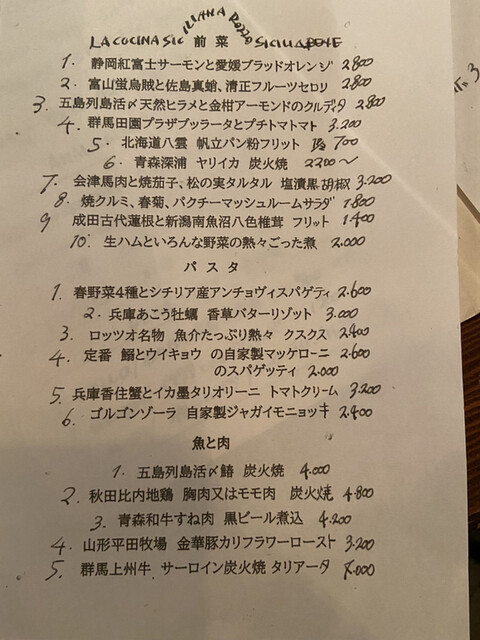 LA COCINA SICILIANA ROZZO SICILIANE
前菜
1. 静岡紅富士サーモンと愛媛ブラッドオレンジ 2800
2. 富山蛍烏賊と佐島真蛸、清正フルーツセロリ 2800
3. 五島列島活〆天然ヒラメと金柑アーモンドのクルデタ 2800
4. 群馬田園プラザブッラータとプチトマトマト 3.200
5. 北海道八雲 帆立パン粉フリット 700
6. 青森深浦 ヤリイカ 炭火焼 2200〜
7. 会津馬肉と焼茄子、松の実タルタル 塩漬黒胡椒 3.200
8. 焼クルミ、春菊、パクチーマッシュルームサラダ 1.800
9 成田古代蓮根と新潟南魚沼八色椎茸 フリット 1.400
10. 生ハムといろんな野菜の熱々ごった煮 2.000
パスタ
1. 春野菜4種とシチリア産アンチョヴィスパゲティ 2.600
2. 兵庫あこう牡蠣 香草バターリゾット 3.000
3. ロッツオ名物 魚介たっぷり熱々 クスクス 2.400
4. 定番 鰯とウイキョウ の自家製マッケローニ 2.600
のスパゲッティ 2.000
5. 兵庫香住蟹とイカ墨タリオリーニ トマトクリーム 3.200
6. ゴルゴンゾーラ 自家製ジャガイモニョッキ 2.400
魚と肉
1. 五島列島活〆鰆 炭火焼 4.000
2. 秋田比内地鶏 胸肉又はモモ肉 炭火焼 4.800
3. 青森和牛すね肉 黒ビール煮込 4.200
4. 山形平田牧場 金華豚カリフラワーロースト 3.200
5. 群馬上州牛 サーロイン炭火焼 タリアータ 8.000